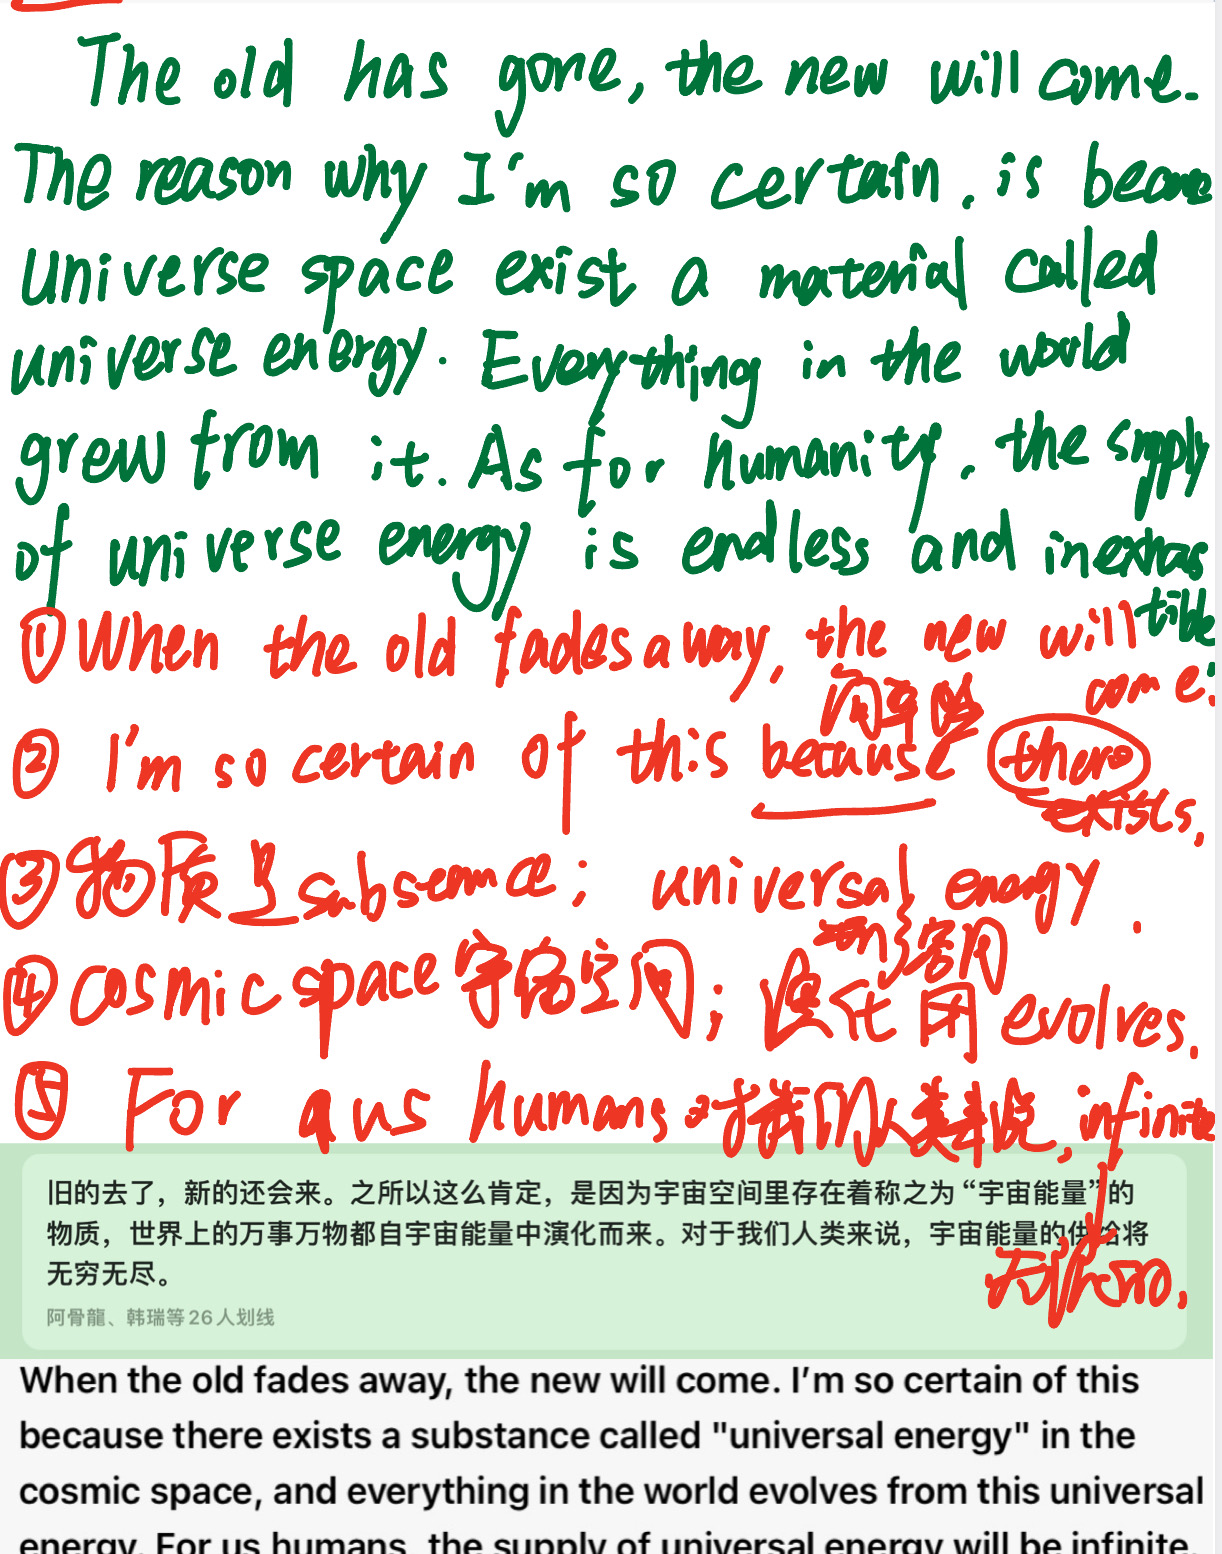 The old has gone, the new will come.
The reason why I'm so certain, is because
universe space exist a material called
universe energy. Everything in the world
grew from it. As for humanity, the supply
of universe energy is endless and inexhaus
tible.
① When the old fades away, the new will
come.
同单
② I'm so certain of this because there
exists.
③ 物质 substance; universal energy.
④ cosmic space 宇宙空间; 演化 evolves.
⑤ For us humans 对我们人类来说, infinite
旧的去了，新的还会来。之所以这么肯定，是因为宇宙空间里存在着称之为“宇宙能量”的
物质，世界上的万事万物都自宇宙能量中演化而来。对于我们人类来说，宇宙能量的供给将
无穷无尽。
阿骨龍、韩瑞等26人划线
When the old fades away, the new will come. I'm so certain of this
because there exists a substance called "universal energy" in the
cosmic space, and everything in the world evolves from this universal
energy. For us humans, the supply of universal energy will be infinite.